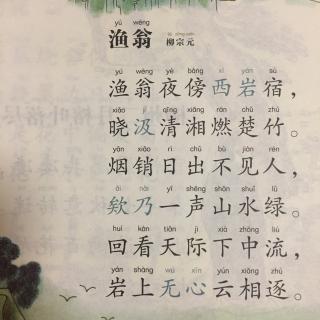 yú wēng
渔翁
柳宗元
yú wēng yè bàng xī yán sù
渔翁夜傍西岩宿，
xiǎo jí qīng xiāng rán chǔ zhú
晓汲清湘燃楚竹。
yān xiāo rì chū bú jiàn rén
烟销日出不见人，
ǎi nǎi yī shēng shān shuǐ lǜ
欸乃一声山水绿。
huí kàn tiān jì xià zhōng liú
回看天际下中流，
yán shàng wú xīn yún xiāng zhú
岩上无心云相逐。